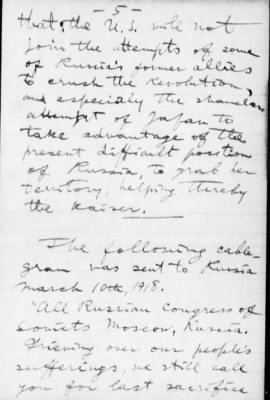 - 5 -
that, the U.S. will not
join the attempts of some
of Russia's former allies
to crush the Revolution,
and especially the shameless
attempt of Japan to
take advantage of the
present difficult position
of Russia, to grab her
territory, helping thereby
the Kaiser.
The following cable-
gram was sent to Russia
March 10th, 1918.
"All Russian Congress of
Soviets Moscow, Russia.
Grieving over our people's
sufferings, we still call
you for last sacrifice